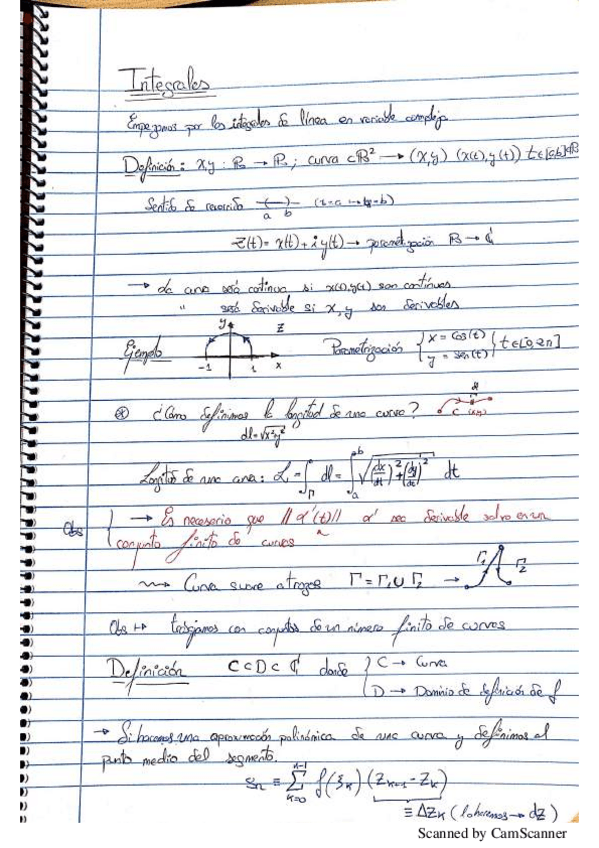 Integrales
Empezamos por las integrales de línea en variable compleja
Definición: x,y : ℝ → ℝ; curva ⊂ ℝ² → (x,y) (x(t),y(t)) t∈[a,b]⊂ℝ
Sentido de recorrido a b (t=a → t=b)
z(t) = x(t) + i y(t) → parametrización ℝ → ₵
→ La curva será continua si x(t), y(t) son continuas
" será derivable si x, y son derivables
Ejemplo y z -1 1 x Parametrización { x = cos(t) y = sen(t) } t∈[0,2π]
⊛ ¿Cómo definimos la longitud de una curva? dl C
dl=√x²+y²
Longitud de una curva: L = ∫_Γ dl = ∫_a^b √((dx/dt)² + (dy/dt)²) dt
Obs { → Es necesario que ||α'(t)|| α' sea derivable salvo en un
conjunto finito de curvas
⇝ Curva suave a trozos Γ = Γ₁ ∪ Γ₂ → Γ₁ Γ₂
Obs ↦ trabajamos con conjuntos de un número finito de curvas
Definición C ⊂ D ⊂ ₵ donde { C → Curva
D → Dominio de definición de f
→ Si hacemos una aproximación polinómica de una curva y definimos al
punto medio del segmento.
Sn ≡ ∑_{k=0}^{n-1} f(ξk) (Zk+1 - Zk)
≡ ΔZk (lo haremos → dz)
Scanned by CamScanner